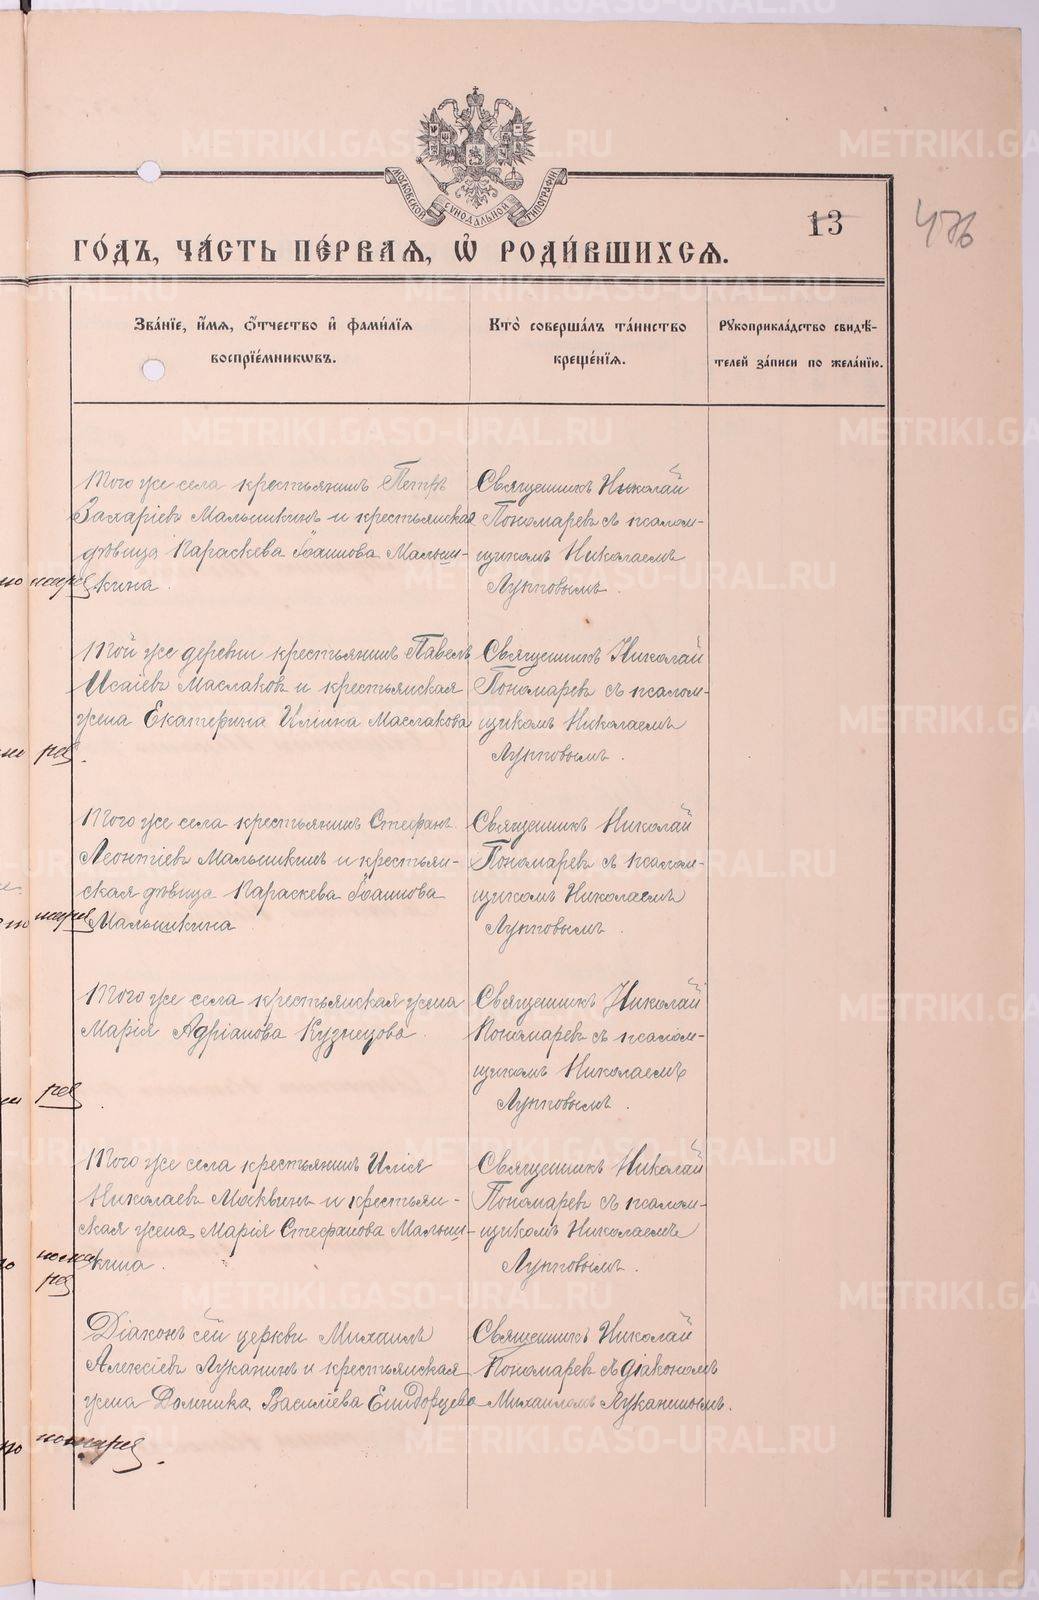 МОСКОВСКОЙ СѴНОДАЛЬНОЙ ТИПОГРАФІИ
13
476
ГО́ДЪ, ЧА́СТЬ ПЕ́РВАѦ, Ѡ҆ РОДИ́ВШИХСѦ.
Зва́нїе, и҆́мѧ, ѻ҆́тчество и҆ фами́лїѧ
воспрїе́мникѡвъ.
Кто̀ соверша́лъ та́инство
креще́нїѧ.
Рꙋкоприкла́дство свидѣ́-
телей за́писи по жела́нїю.
Того же села крестьянинъ Петръ
Захаріевъ Малышкинъ и крестьянская
дѣвица Параскева Іоаннова Малыш-
кина.
Священникъ Николай
Пономаревъ съ псалом-
щикомъ Николаемъ
Лупповымъ.
Той же деревни крестьянинъ Павелъ
Исаіевъ Маслаковъ и крестьянская
жена Екатерина Иліина Маслакова
Священникъ Николай
Пономаревъ съ псалом-
щикомъ Николаемъ
Лупповымъ.
Того же села крестьянинъ Стефанъ
Леонтіевъ Малышкинъ и крестьян-
ская дѣвица Параскева Іоаннова
Малышкина
Священникъ Николай
Пономаревъ съ псалом-
щикомъ Николаемъ
Лупповымъ.
Того же села крестьянская жена
Марія Адріанова Кузнецова.
Священникъ Николай
Пономаревъ съ псалом-
щикомъ Николаемъ
Лупповымъ.
Того же села крестьянинъ Илія
Николаевъ Москвинъ и крестьян-
ская жена Марія Стефанова Малыш-
кина.
Священникъ Николай
Пономаревъ съ псалом-
щикомъ Николаемъ
Лупповымъ.
Діаконъ сей церкви Михаилъ
Алексіевъ Луканинъ и крестьянская
жена Домника Василіева
Священникъ Николай
Пономаревъ съ діакономъ
Михаиломъ Луканинымъ.
METRIKI.GASO-URAL.RU